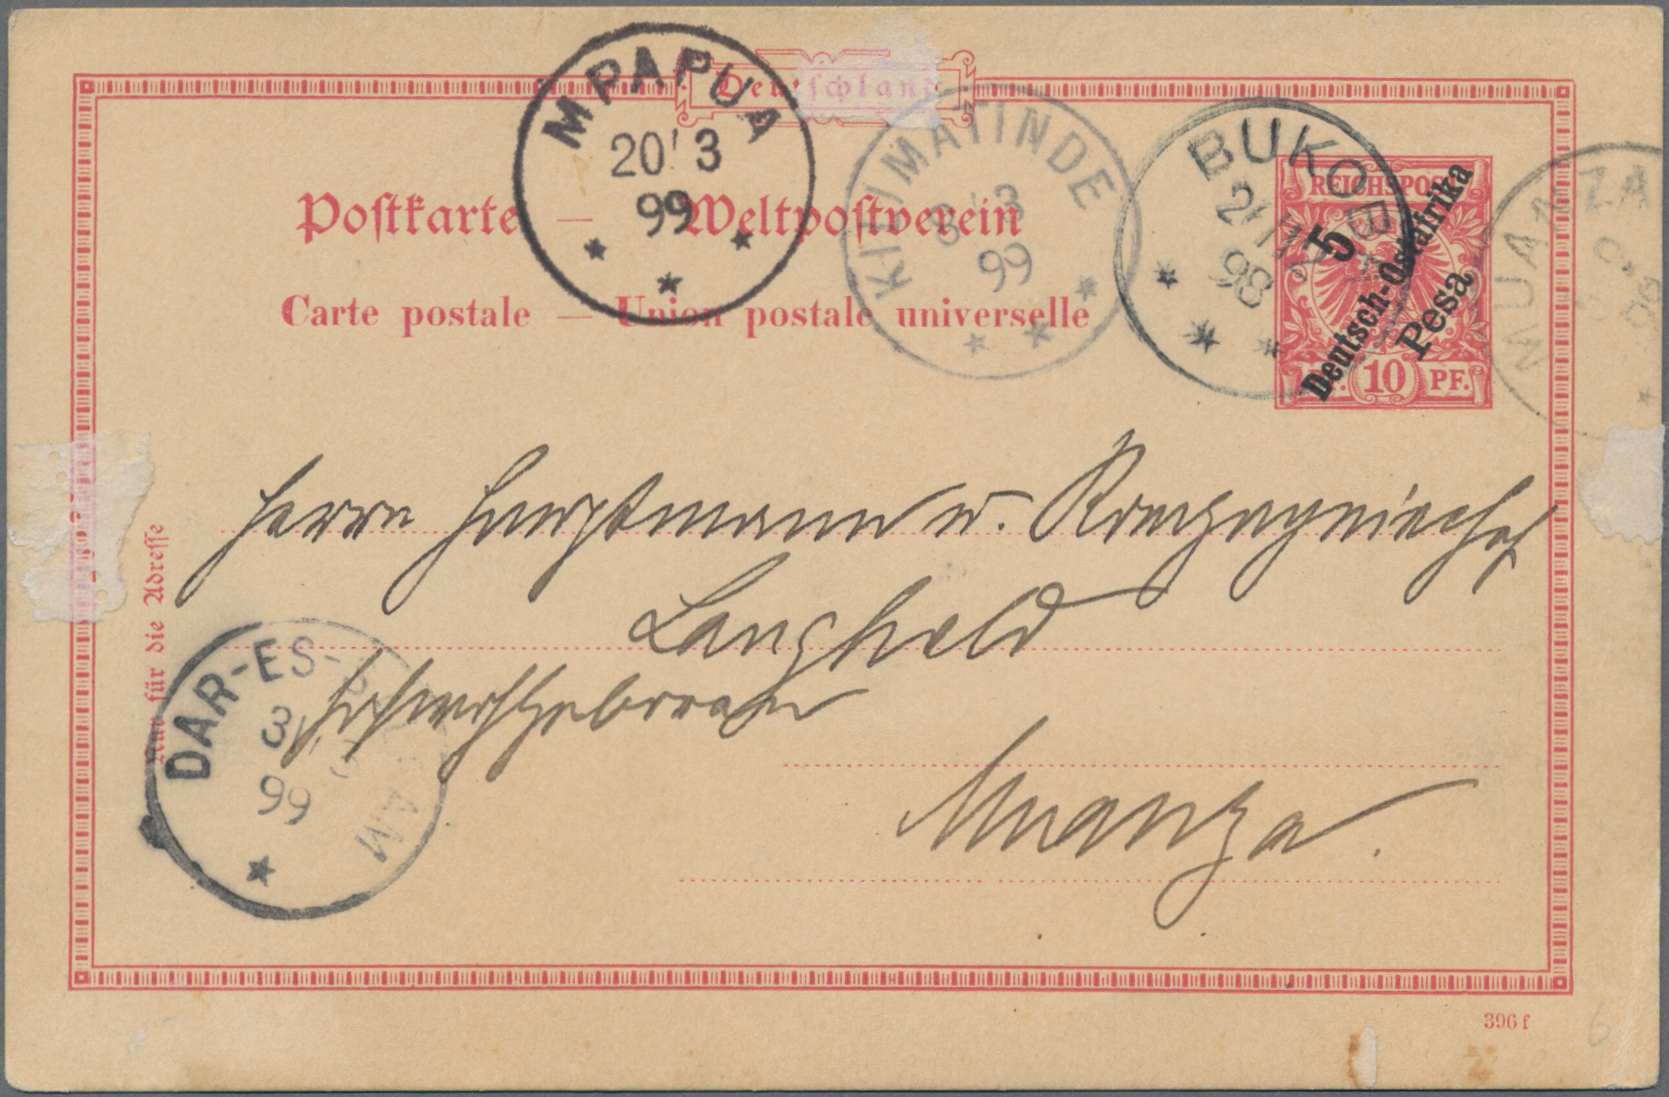 Deutschland
MPAPUA
20/3
99
KILIMATINDE
8/3
99
BUKOBA
98
MUANZA
REICHSPOST
5
Deutsch-Ostafrika
Pesa
10 PF.
Postkarte — Weltpostverein
Carte postale — Union postale universelle
Herrn Hauptmann u. Kompagniechef
Langheld
Hochwohlgeboren
Muanza.
Nur für die Adresse
DAR-ES-SALAAM
31
99
396 f
6